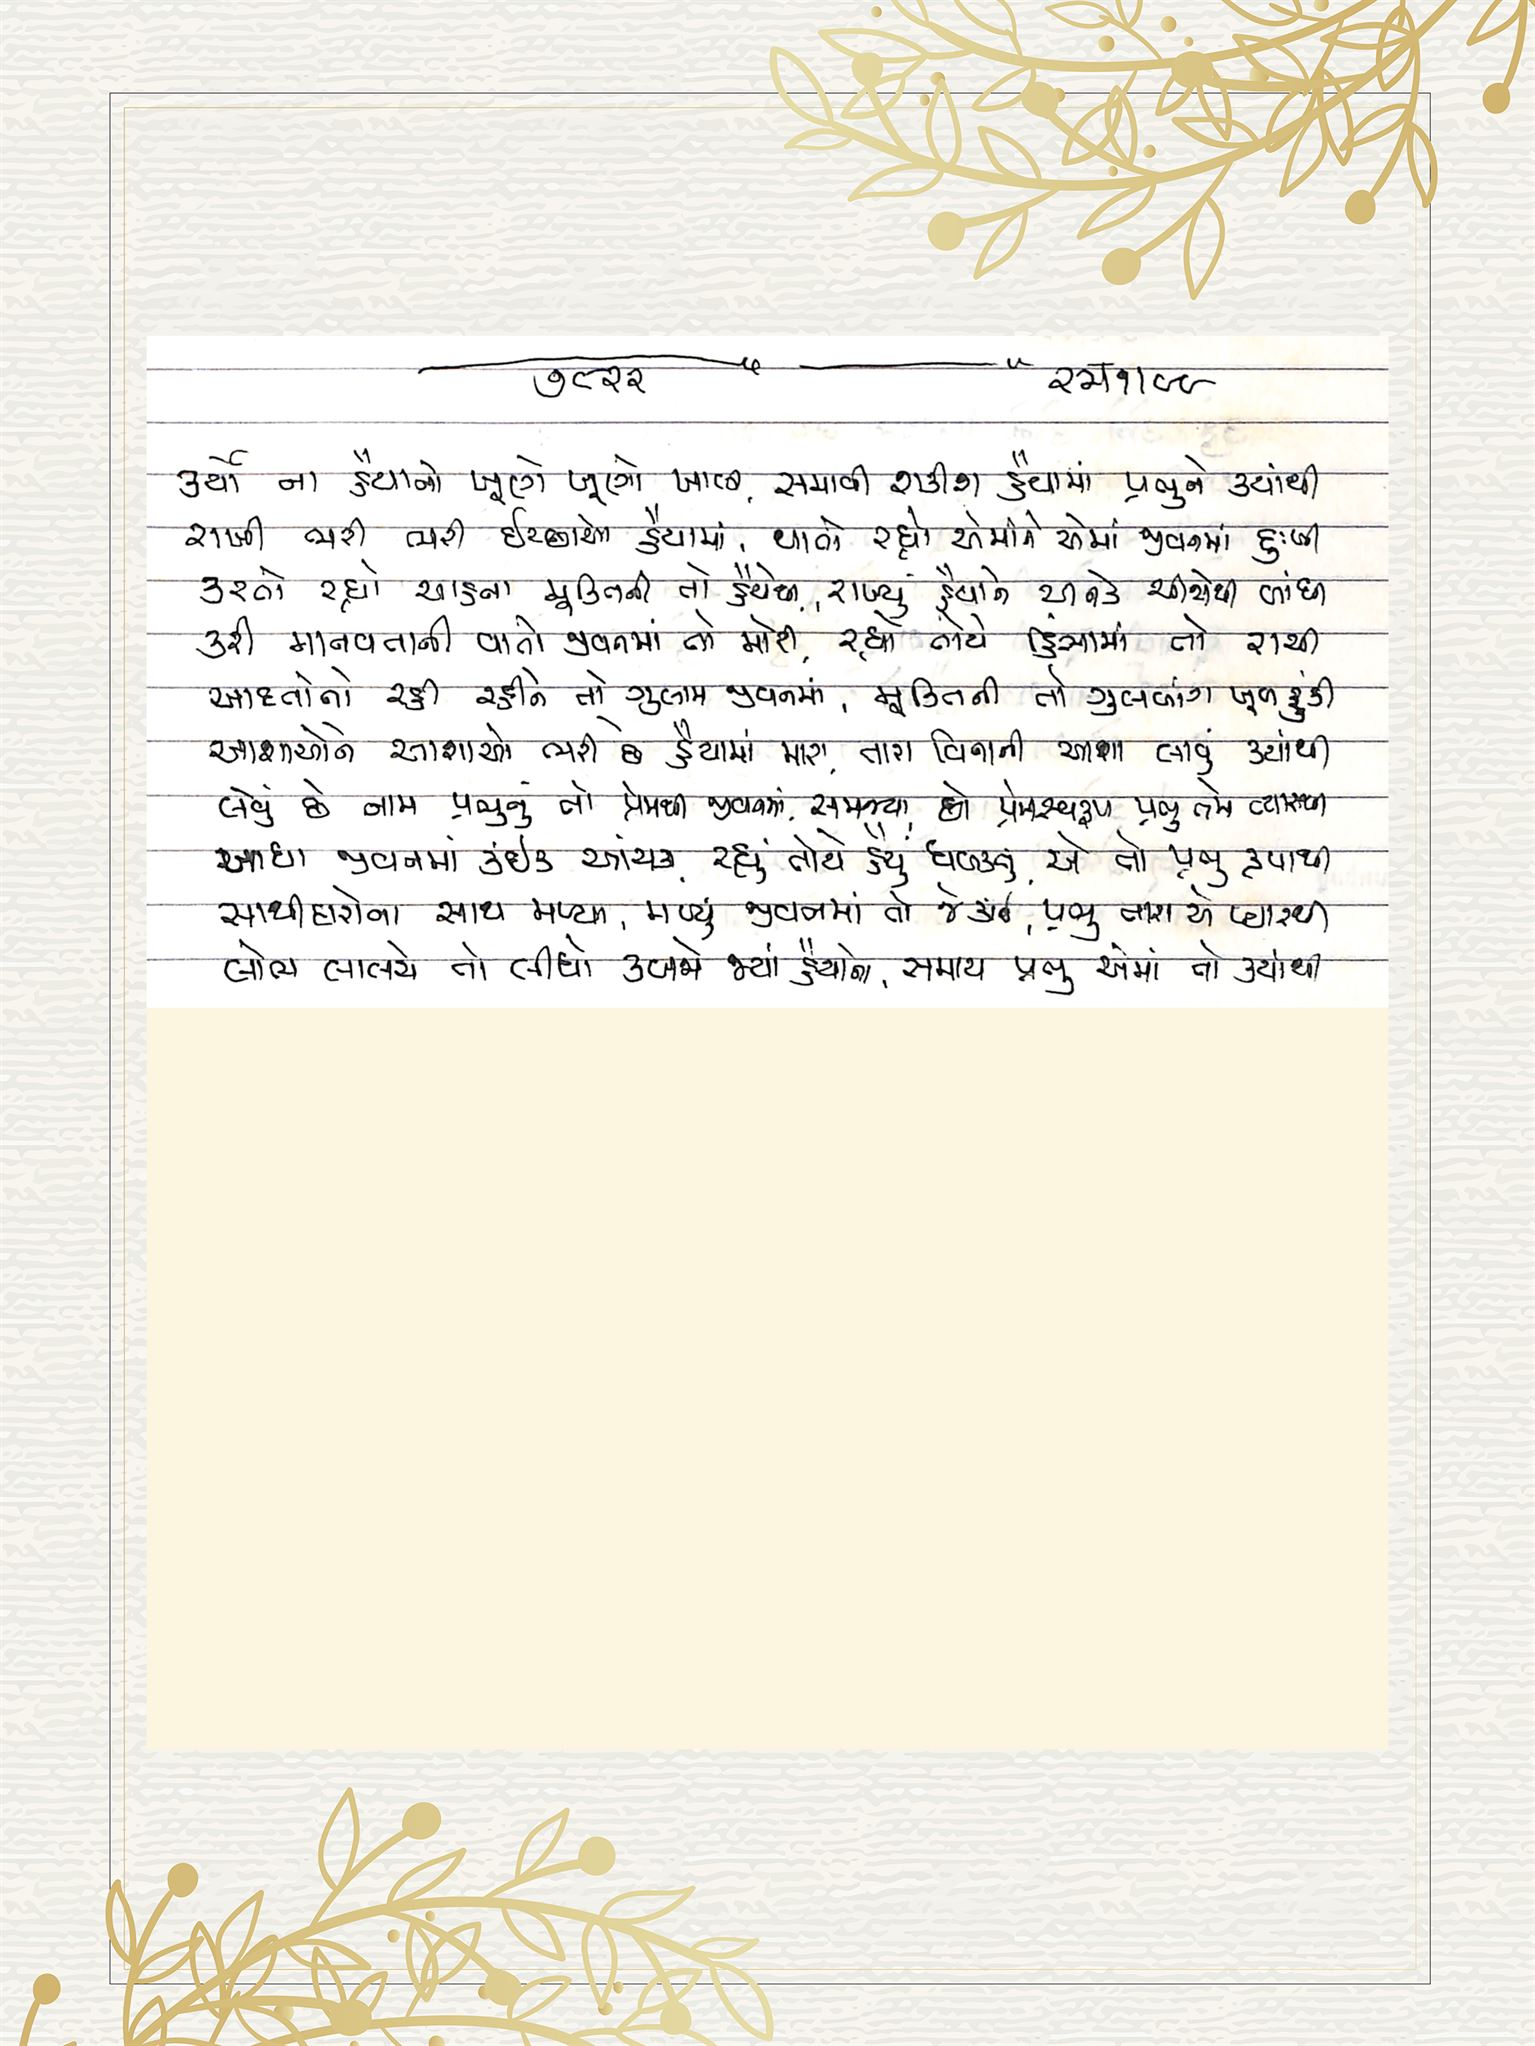 ૭૯૨૨
કર્યો ના હૈયાનો ખૂણે ખૂણો ખાલી, સમાવી શકીશ હૈયામાં પ્રભુને ક્યાંથી
રાખી ભરી ભરી ઈચ્છાઓ હૈયામાં, થાતો રહ્યો એમાંને એમાં જીવનમાં દુઃખી
કરતો રહ્યો ચાહના મુક્તિની તો હૈયેથી, રાખ્યું હૈયાને અનેક ચીજોથી બાંધી
કરી માનવતાની વાતો જીવનમાં તો મોટી, રહ્યો તોયે હિંસામાં તો રાચી
આદતોનો રહી રહીને તો ગુલામ જીવનમાં, મુક્તિની તો ગુલબાંગ ખૂબ ફૂંકી
આશાઓને આશાઓ ભરી છે હૈયામાં મારા, તારા વિનાની આશા લાવું ક્યાંથી
લેવું છે નામ પ્રભુનું તો પ્રેમથી જીવનમાં, સમજ્યા, છો પ્રેમસ્વરૂપ પ્રભુ તમે ત્યારથી
આઘા જીવનમાં કંઈક આંચકા, રહ્યું તોયે હૈયું ધબકતું, એ તો પ્રભુ કૃપાથી
સાથીદારોના સાથ મળ્યા, મળ્યું જીવનમાં તો જે કાંઈ, પ્રભુ તારા એ પ્યારથી
લોભ લાલચે તો લીધો કબજો જ્યાં હૈયાનો, સમાય પ્રભુ એમાં તો ક્યાંથી